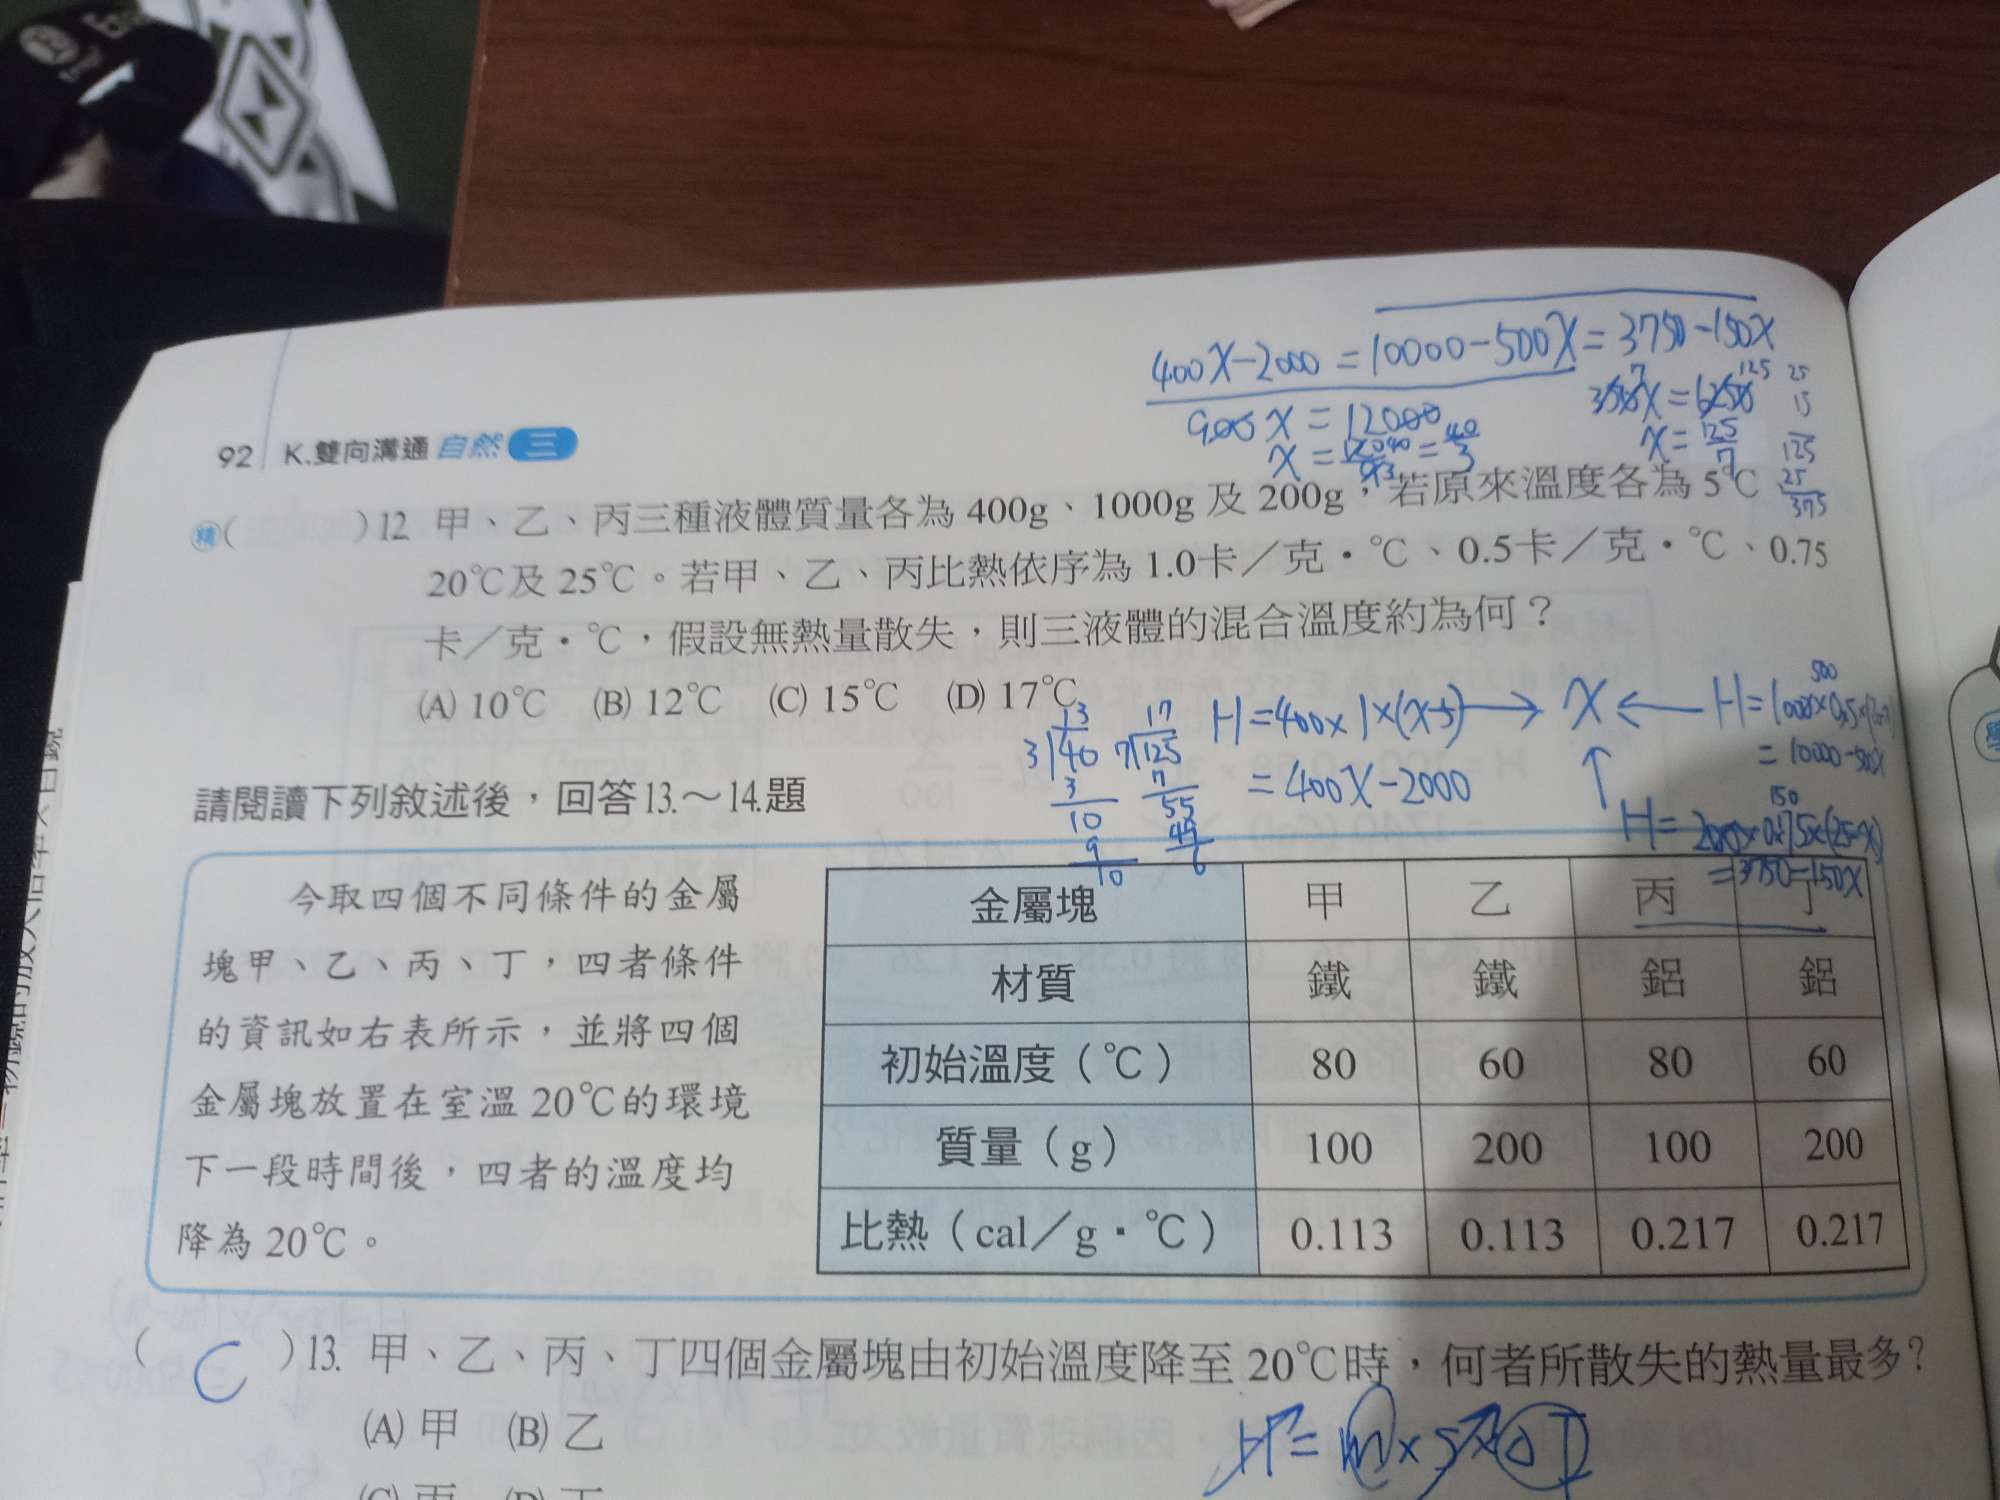 400X-2000 = 10000-500X = 3750-150X
900X = 12000
350X = 6250
X = 40/3
X = 125/7
92 K.雙向溝通 自然 三
精( )12. 甲、乙、丙三種液體質量各為 400g、1000g 及 200g,若原來溫度各為 5℃、
20℃及 25℃。若甲、乙、丙比熱依序為 1.0卡/克·℃、0.5卡/克·℃、0.75
卡/克·℃,假設無熱量散失,則三液體的混合溫度約為何?
(A) 10℃ (B) 12℃ (C) 15℃ (D) 17℃
H=400×1×(X-5) → X ←
=400X-2000
= 10000-500X
=3750-150X
請閱讀下列敘述後,回答13.~14.題
今取四個不同條件的金屬
塊甲、乙、丙、丁,四者條件
的資訊如右表所示,並將四個
金屬塊放置在室溫 20℃的環境
下一段時間後,四者的溫度均
降為 20℃。
金屬塊 甲 乙 丙 丁
材質 鐵 鐵 鋁 鋁
初始溫度(℃) 80 60 80 60
質量(g) 100 200 100 200
比熱(cal/g·℃) 0.113 0.113 0.217 0.217
( C )13. 甲、乙、丙、丁四個金屬塊由初始溫度降至 20℃時,何者所散失的熱量最多?
(A) 甲 (B) 乙
(C) 丙 (D) 丁